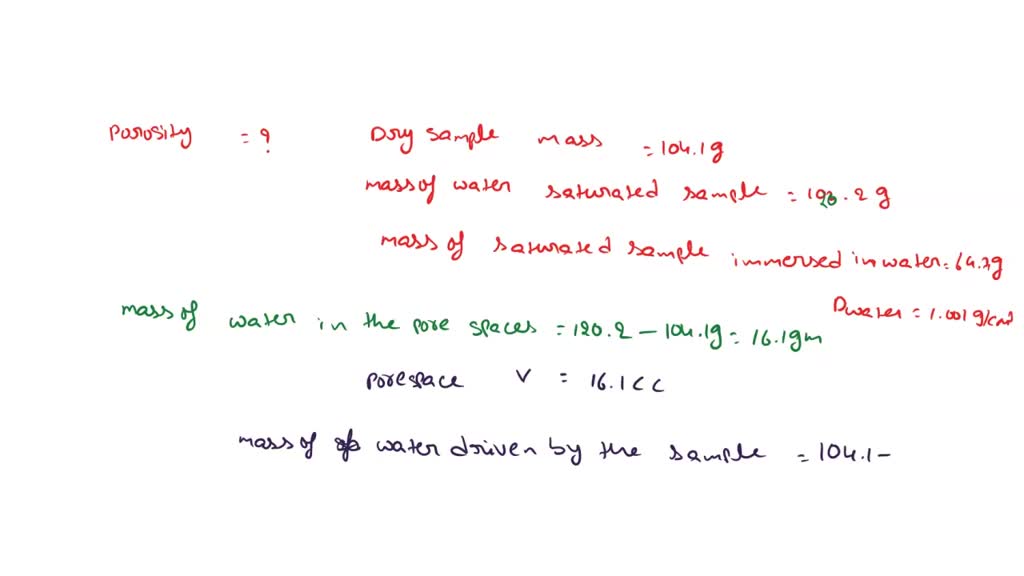 Porosity = ? Dry sample mass = 104.1g
mass of water saturated sample = 120.2 g
mass of saturated sample immersed in water = 64.7g
Dwater = 1.001 g/cm³
mass of water in the pore spaces = 120.2 - 104.1g = 16.1gm
pore space V = 16.1 cc
mass of water driven by the sample = 104.1 -